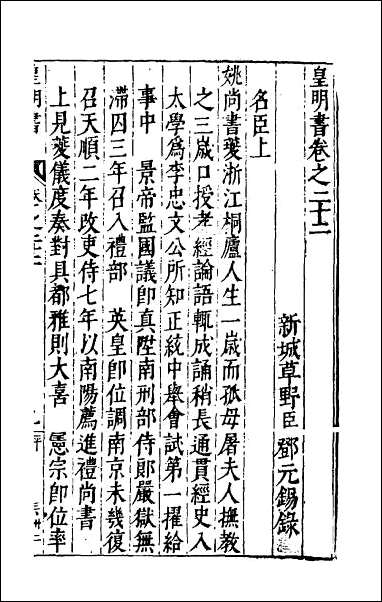 皇明書卷之二十二
新城草野臣鄧元錫錄
名臣上
姚尚書夔浙江桐廬人生一歲而孤母屠夫人撫教
之三歲口授孝經論語輒成誦稍長通貫經史入
太學爲李忠文公所知正統中舉會試第一擢給
事中 景帝監國議卽真陞南刑部侍郎嚴獄無
滯囚三年召入禮部 英皇卽位調南京未幾復
召天順二年改吏侍七年以南陽薦進禮尚書
上見夔儀度奏對具都雅則大喜 憲宗卽位率
皇明書
卷之二十二